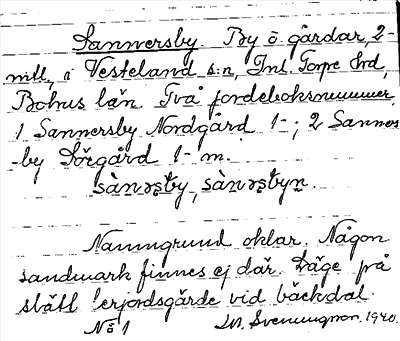 Sannersby. By o. gårdar, 2-
mtl, i Vesteland s:n, Inl. Torpe hrd,
Bohus län. Två jordeboksnummer,
1 Sannersby Nordgård 1-; 2 Sanners
-by Sörgård 1- m.
sànəʂby, sànəʂbyn.
Namngrund oklar. Någon
sandmark finnes ej där. Läge på
slätt lerjordsgärde vid bäckdal.
No 1 Svenungson. 1940.